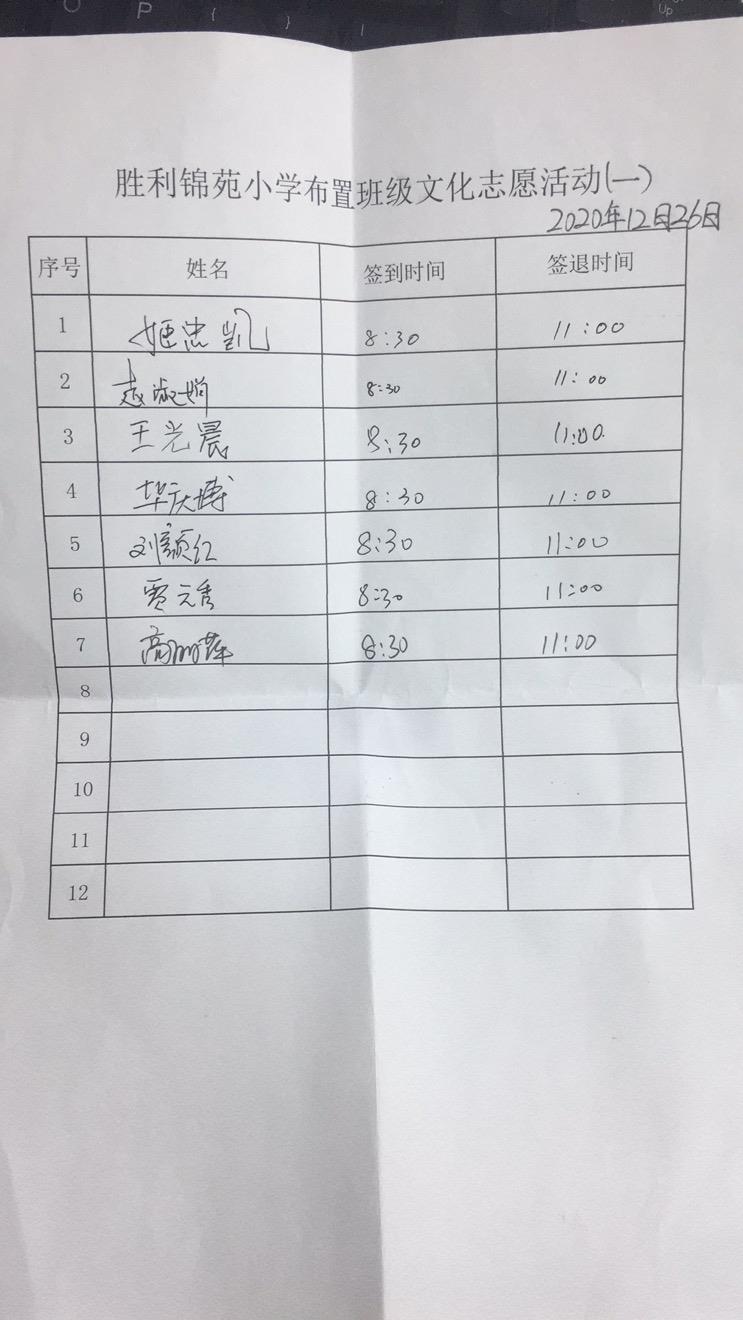 P
{
}
Up
胜利锦苑小学布置班级文化志愿活动(一)
2020年12月26日
序号 姓名 签到时间 签退时间
1 姬忠凯 8:30 11:00
2 赵淑娟 8:30 11:00
3 王光晨 8:30 11:00
4 华庆博 8:30 11:00
5 刘颖红 8:30 11:00
6 贾元秀 8:30 11:00
7 高 8:30 11:00
8
9
10
11
12